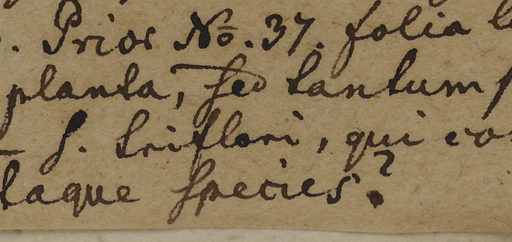 . Prior No. 37. folia
planta, sed tantum
s. triflori, qui
taque species?